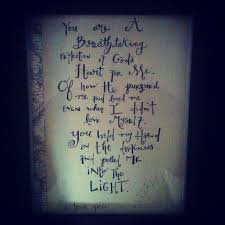 You are A
Breathtaking
reflection of God's
Heart for Me.
Of how He pursued
me and loved me
even when I didn't
love Myself.
you held my Hand
in the darkness
and pulled Me
into the
LIGHT.
I love you